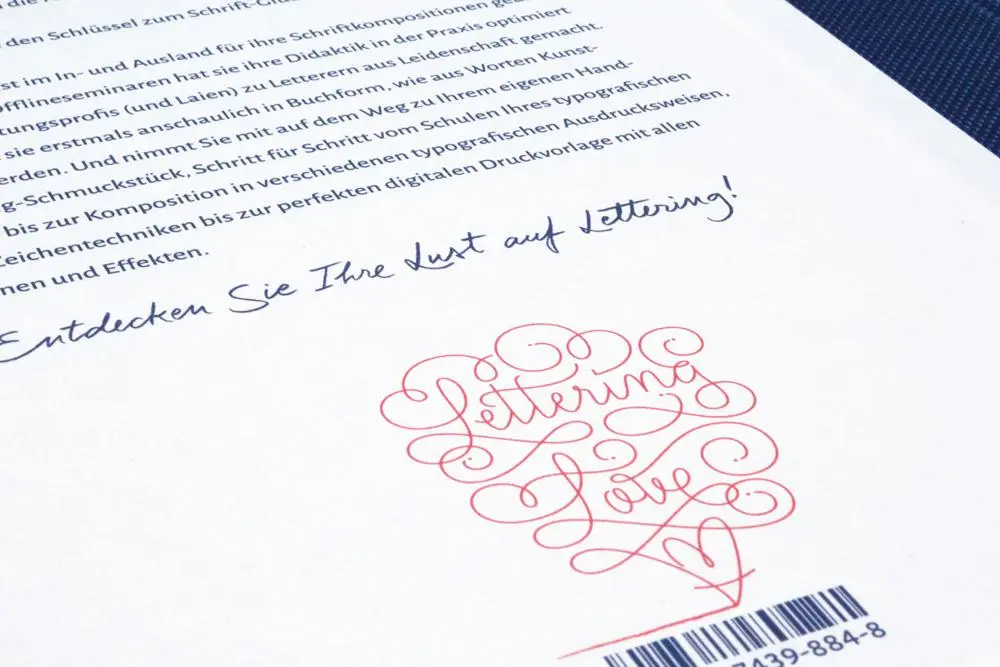 den Schlüssel zum Schrift-
im In- und Ausland für ihre Schriftkompositionen
offlineseminaren hat sie ihre Didaktik in der Praxis optimiert
tungsprofis (und Laien) zu Letterern aus Leidenschaft gemacht.
sie erstmals anschaulich in Buchform, wie aus Worten Kunst-
erden. Und nimmt Sie mit auf dem Weg zu Ihrem eigenen Hand-
g-Schmuckstück, Schritt für Schritt vom Schulen Ihres typografischen
bis zur Komposition in verschiedenen typografischen Ausdrucksweisen,
Zeichentechniken bis zur perfekten digitalen Druckvorlage mit allen
nen und Effekten.
Entdecken Sie Ihre Lust auf Lettering!
Lettering
Love
439-884-8